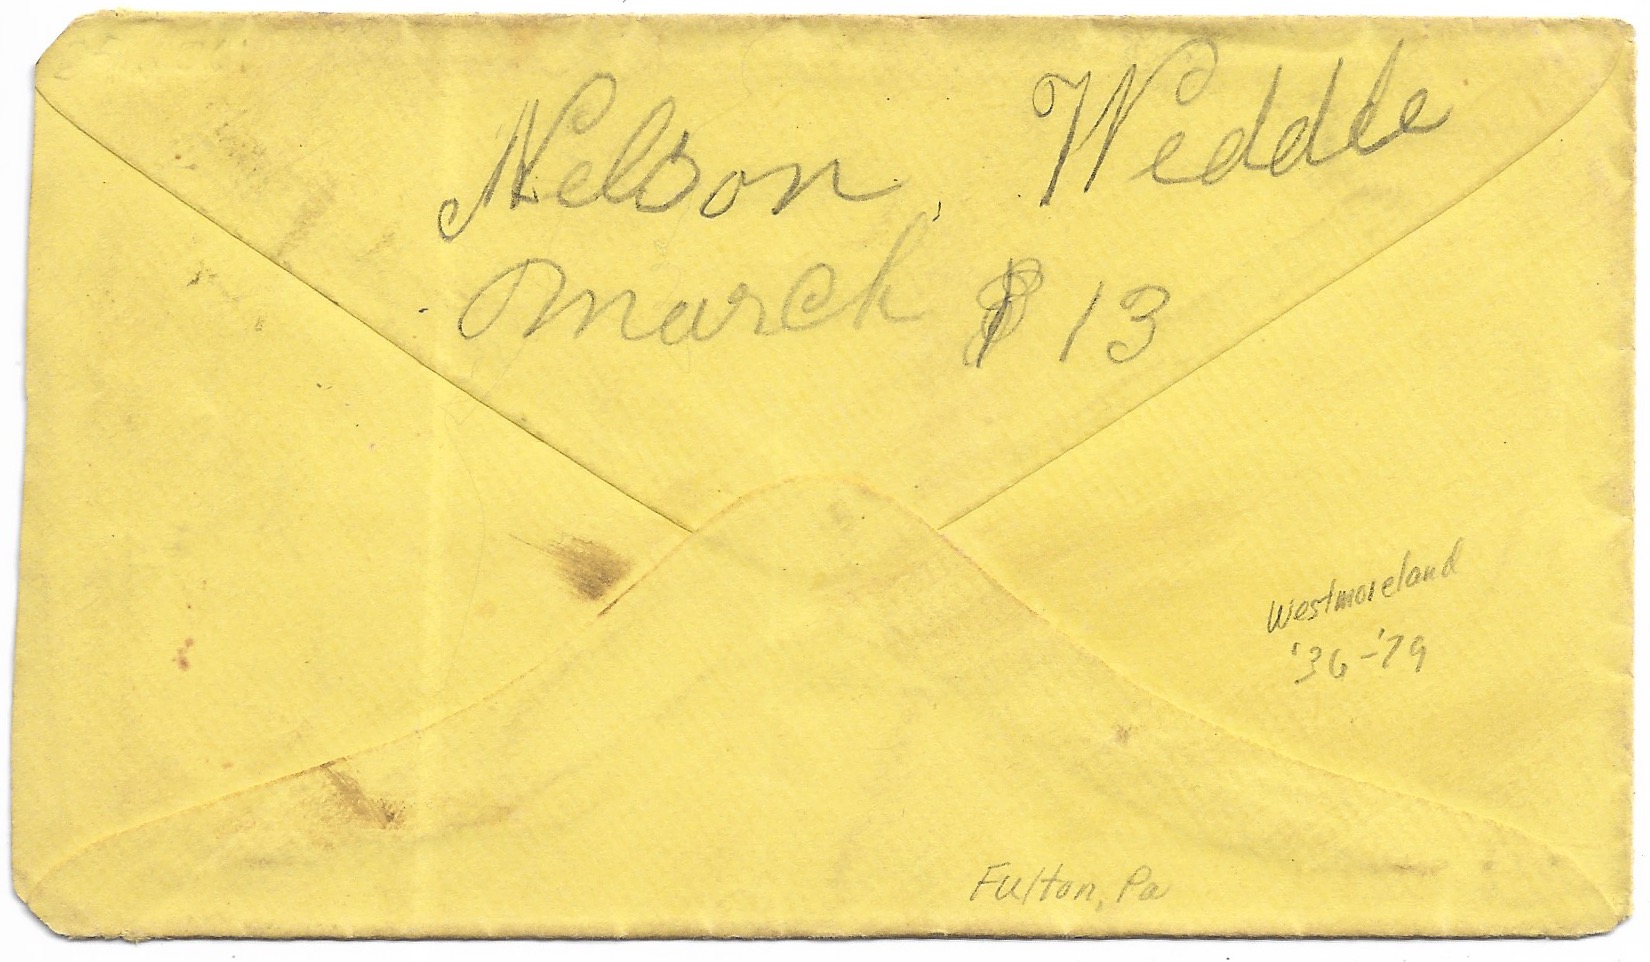 Nelson Weddle
March 13
Westmoreland
'36-'79
Fulton, Pa